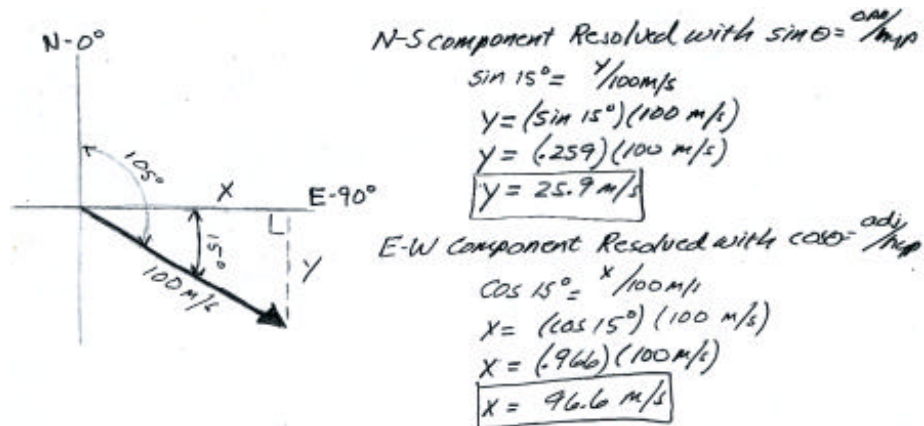 N-0°
105°
X
E-90°
15°
Y
100 m/s
N-S component Resolved with sin θ = opp/hyp
sin 15° = y/100m/s
Y = (sin 15°)(100 m/s)
Y = (.259)(100 m/s)
Y = 25.9 m/s
E-W Component Resolved with cosθ = adj/hyp
Cos 15° = x/100m/s
X = (cos 15°)(100 m/s)
X = (.966)(100m/s)
X = 96.6 m/s